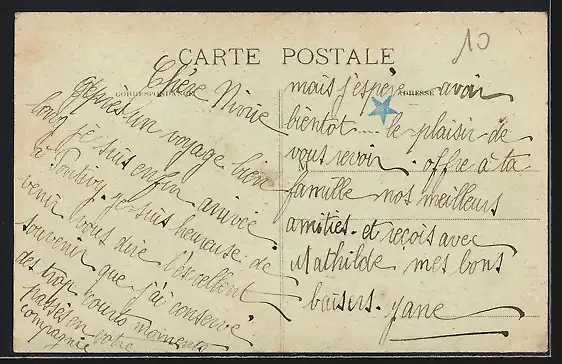 10
CARTE POSTALE
CORRESPONDANCE
ADRESSE
Chère Ninie
Après un voyage bien
long je suis enfin arrivée
à Pontivy. Je suis heureuse de
venir vous dire l'excellent
souvenir que j'ai conservé
des trop courts moments
passés en votre
compagnie
mais j'espère avoir
bientôt.... le plaisir de
vous revoir. offre à ta
famille nos meilleurs
amitiés. et reçois avec
Mathilde mes bons
baisers. Jane